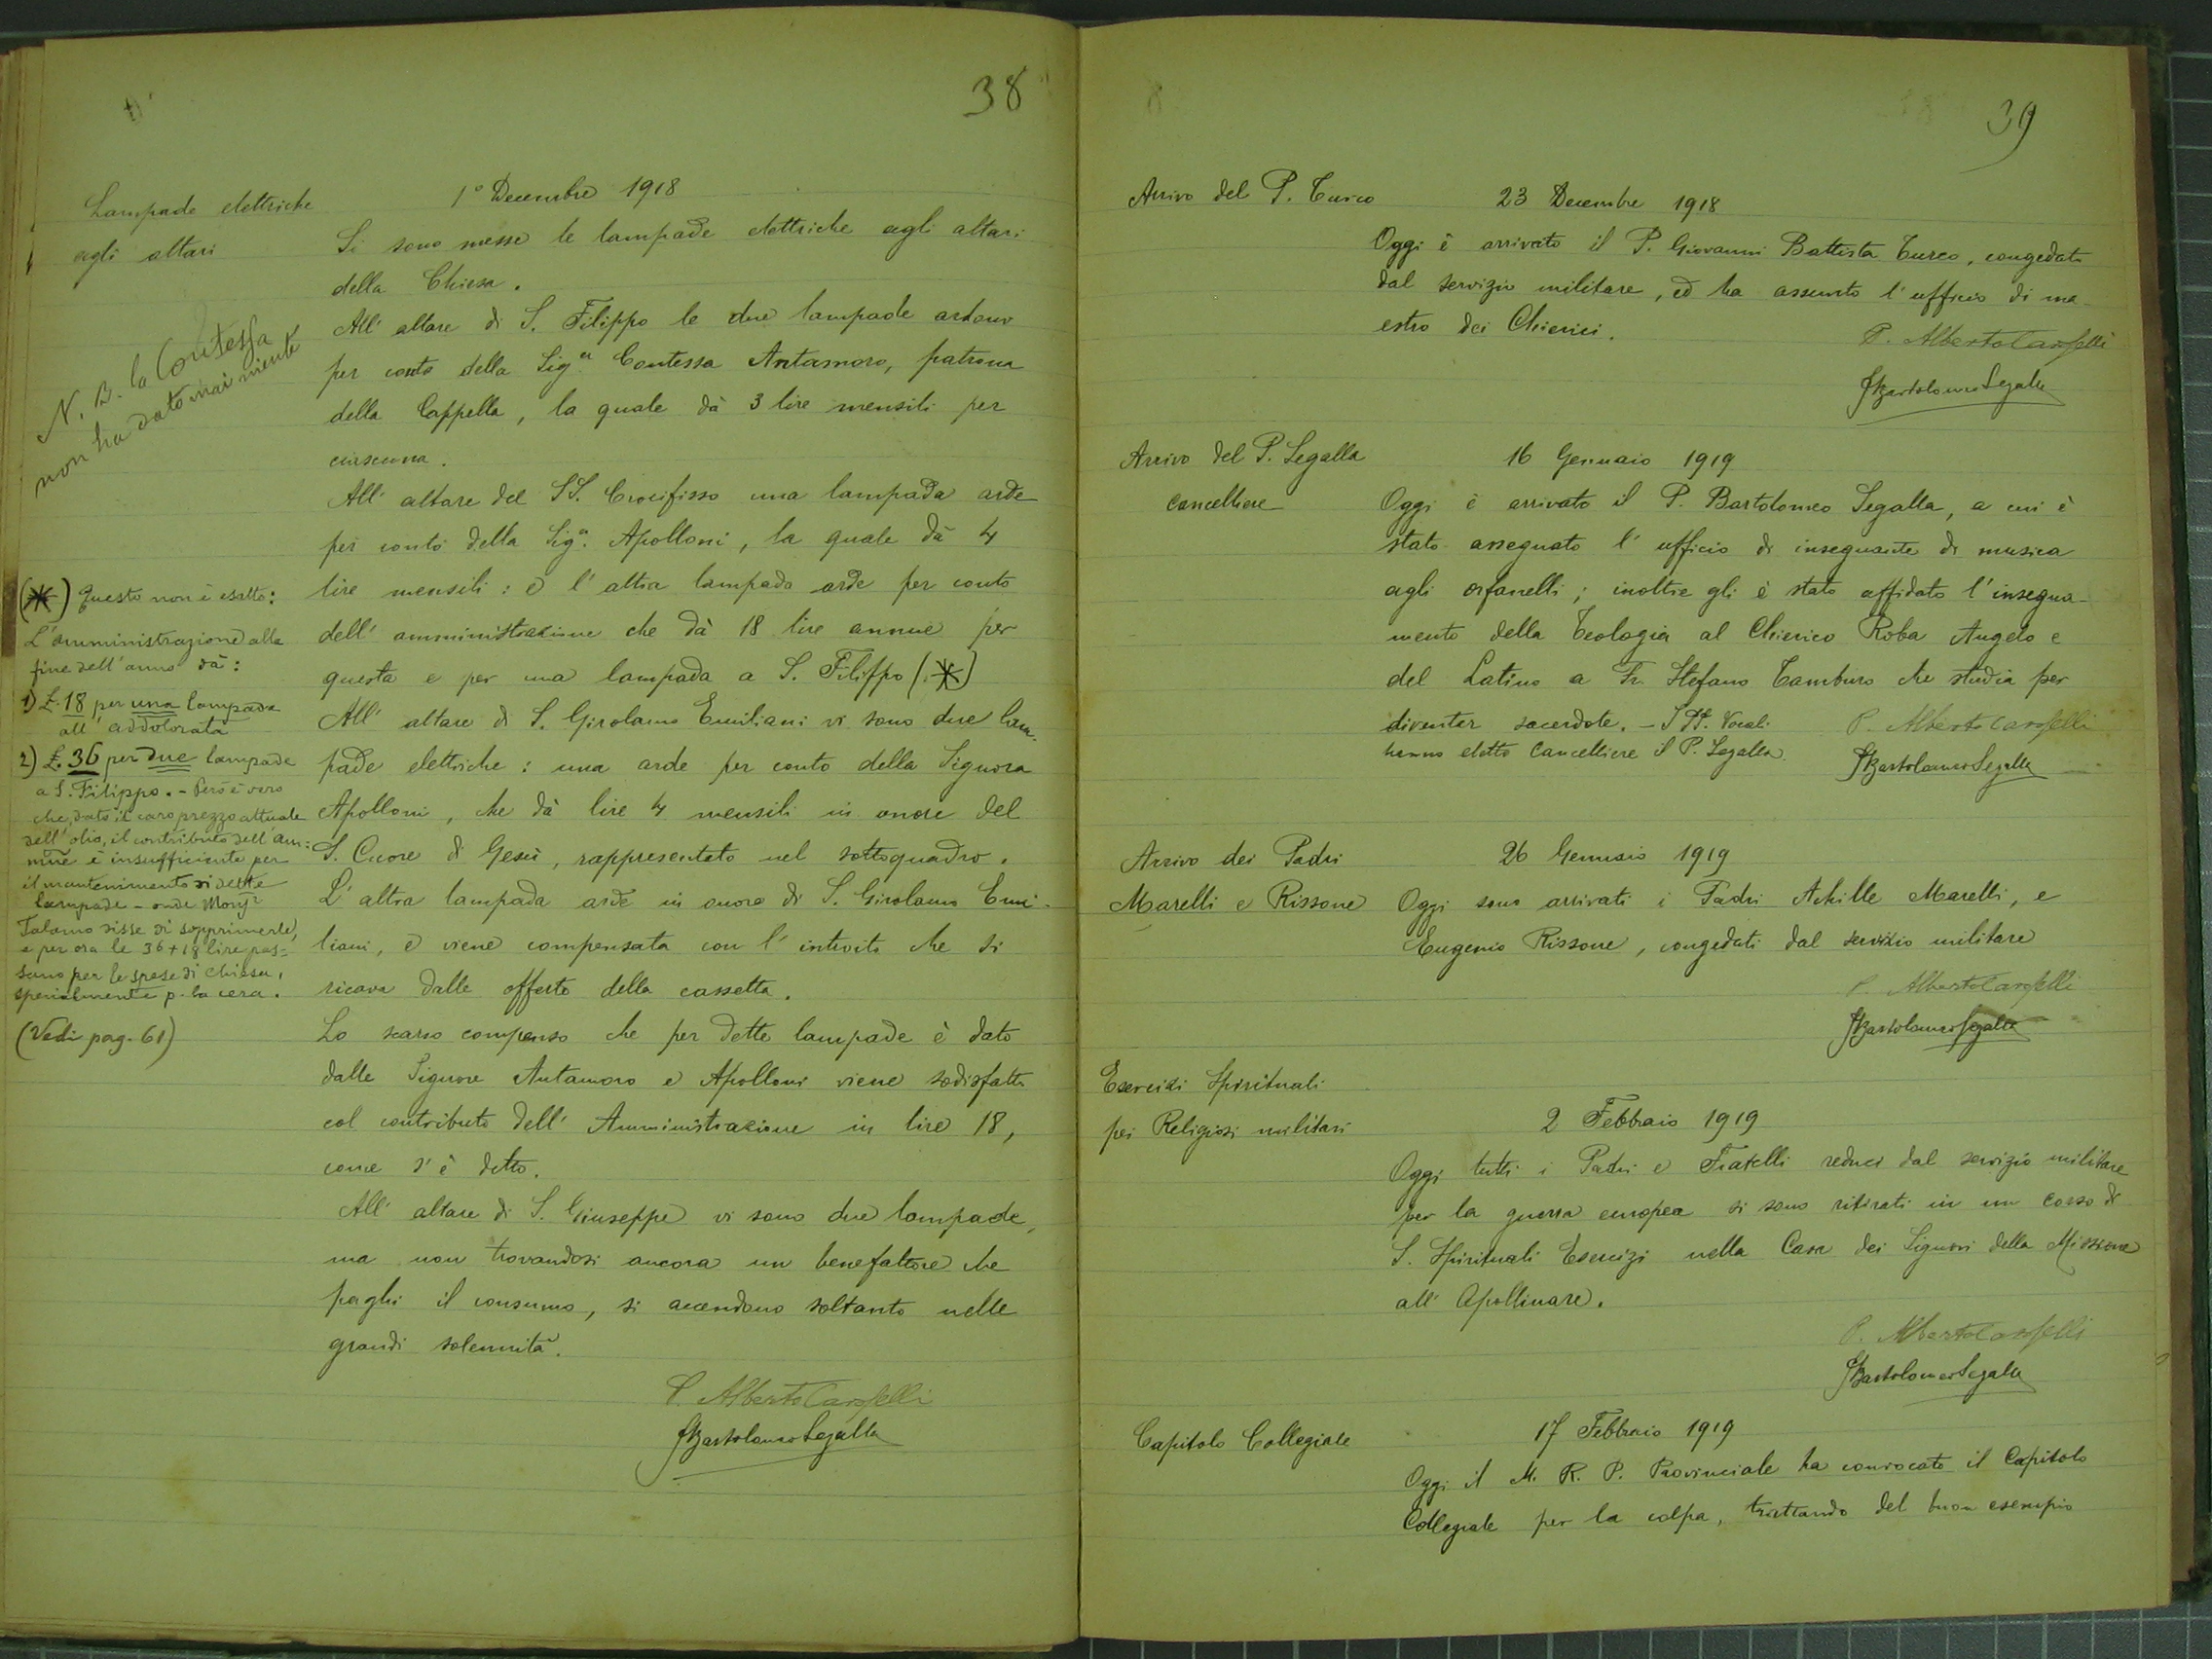 38
Lampade elettriche
agli altari
1º Decembre 1918
Si sono messe le lampade elettriche agli altari
della Chiesa.
All' altare di S. Filippo le due lampade ardono
per conto della Sigª Contessa Antamoro, patrona
della Cappella, la quale dà 3 lire mensili per
ciascuna.
N. B. la Contessa
non ha dato mai niente
All' altare del SS. Crocifisso una lampada arde
per conto della Sigª. Apolloni, la quale dà 4
lire mensili: e l' altra lampada arde per conto
dell' amministrazione che dà 18 lire annue per
questa e per una lampada a S. Filippo (*)
All' altare di S. Girolamo Emiliani vi sono due lam-
pade elettriche: una arde per conto della Signora
Apolloni, che dà lire 4 mensili in onore del
S. Cuore di Gesù, rappresentato nel sottoquadro.
L' altra lampada arde in onore di S. Girolamo Emi-
liani, e viene compensata con l' introito che si
ricava dalle offerte della cassetta.
Lo scarso compenso che per dette lampade è dato
dalle Signore Antamoro e Apolloni viene sodisfatto
col contributo dell' Amministrazione in lire 18,
come s' è detto.
All' altare di S. Giuseppe vi sono due lampade,
ma non trovandosi ancora un benefattore che
paghi il consumo, si accendono soltanto nelle
grandi solennità.
P. Alberto Caroselli
P Bartolomeo Segalla
(*) Questo non è esatto:
L'amministrazione alla
fine dell'anno dà:
1) £. 18 per una lampada
all' addolorata
2) £. 36 per due lampade
a S. Filippo. - Però è vero
che, dato il caro prezzo attuale
dell' olio, il contributo dell' am:
mne è insufficiente per
il mantenimento di dette
lampade - onde Monsr
Talamo disse di sopprimerle,
e per ora le 36 + 18 lire pas=
sano per le spese di chiesa,
specialmente p. la cera.
(Vedi pag. 61)
39
Arrivo del P. Turco
23 Decembre 1918
Oggi è arrivato il P. Giovanni Battista Turco, congedato
dal servizio militare, ed ha assunto l' ufficio di ma-
estro dei Chierici.
P. Alberto Caroselli
P Bartolomeo Segalla
Arrivo del P. Segalla
cancelliere
16 Gennaio 1919
Oggi è arrivato il P. Bartolomeo Segalla, a cui è
stato assegnato l' ufficio di insegnante di musica
agli orfanelli; inoltre gli è stato affidato l' insegna-
mento della Teologia al Chierico Roba Angelo e
del Latino a Fr. Stefano Tamburo che studia per
diventar sacerdote. - I PP. Vocali
hanno eletto Cancelliere il P. Segalla.
P. Alberto Caroselli
P Bartolomeo Segalla
Arrivo dei Padri
Marelli e Rissone
26 Gennaio 1919
Oggi sono arrivati i Padri Achille Marelli, e
Eugenio Rissone, congedati dal servizio militare
P. Alberto Caroselli
P Bartolomeo Segalla
Esercizi Spirituali
pei Religiosi militari
2 Febbraio 1919
Oggi tutti i Padri e Fratelli reduci dal servizio militare
per la guerra europea si sono ritirati in un corso di
S. Spirituali Esercizi nella Casa dei Signori della Missione
all' Apollinare.
P. Alberto Caroselli
P Bartolomeo Segalla
Capitolo Collegiale
17 Febbraio 1919
Oggi il M. R. P. Provinciale ha convocato il Capitolo
Collegiale per la colpa, trattando del buon esempio